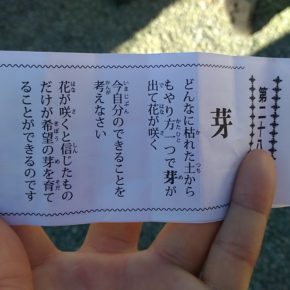 第二十八
芽
どんなに枯れた土から
もやり方一つで芽が
出て花が咲く
今自分のできることを
考えなさい
花が咲くと信じたもの
だけが希望の芽を育て
ることができるのです